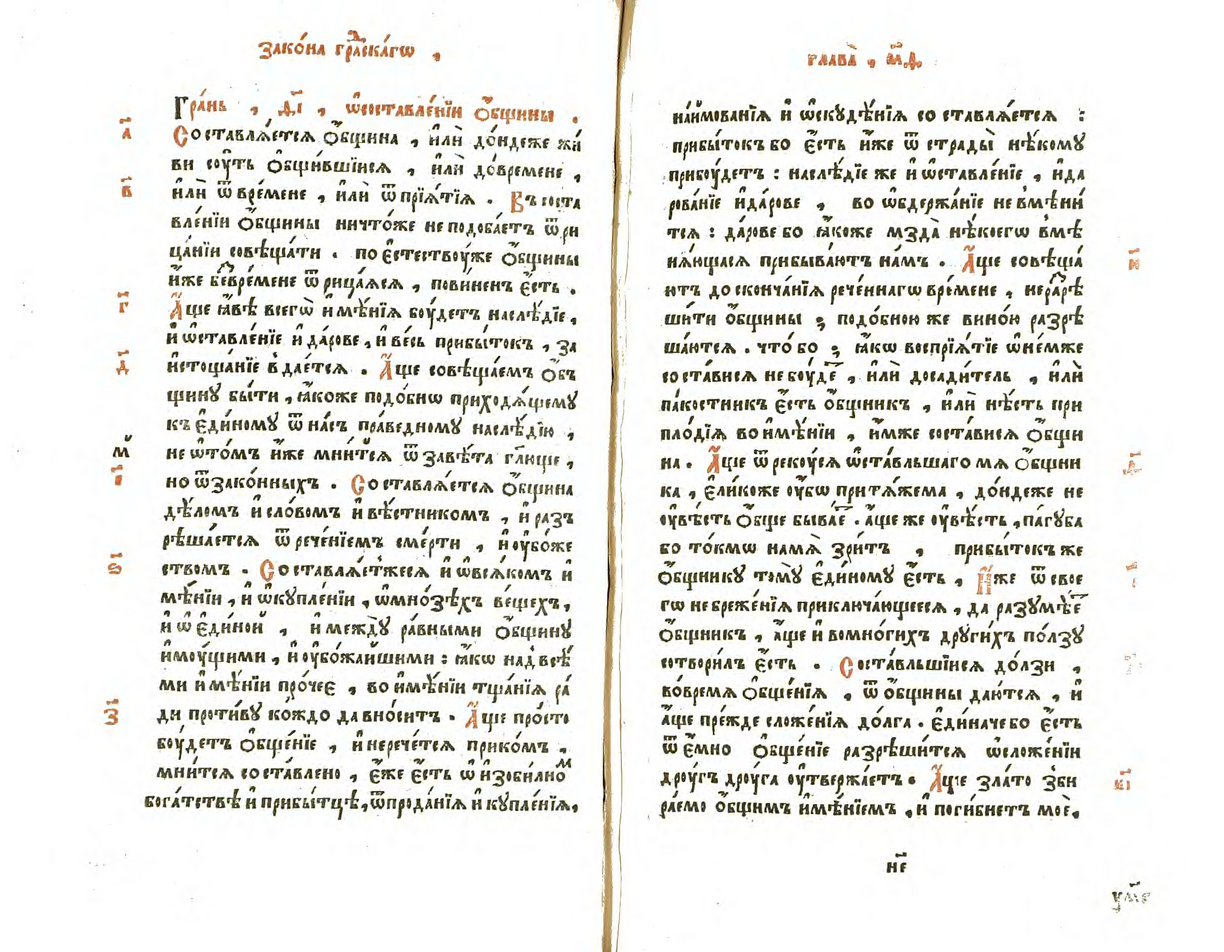 зако́на гра́дскагѡ ,
Гра́нь , д҃і , ѡ҆составле́нїи ѻ҆́бщины .
а҃
Составлѧ́етсѧ ѻ҆́бщина , и҆лѝ до́ндеже жи́
ви соу́ть ѻ҆бщи́вшїисѧ , и҆лѝ до́времене ,
в҃
и҆лѝ ѿ вре́мене , и҆лѝ ѿпрїѧ́тїѧ . Въ соста
вле́нїи ѻ҆́бщины ничто́же не подоба́етъ ѿри
ца́нїи совѣща́ти . по є҆стествоу́же ѻ҆́бщины
и҆́же без̾вре́мене ѿ рица́ѧсѧ , пови́ненъ є҆́сть .
г҃
А҆́ще ꙗ҆́вѣ всегѡ̀ и҆мѣ́нїѧ боу́детъ наслѣ́дїе ,
и҆ ѡ҆ставле́нїе и҆ да́рове , и҆ весь прибы́токъ , за
д҃
и҆стоща́нїе в̾ дае́тсѧ . А҆́ще совѣща́емъ ѻ҆́б̾
щину бы́ти , ꙗ҆́коже подо́бнѡ приходѧ́щему
къ є҆ди́ному ѿ на́съ пра́ведному наслѣ́дїю ,
не ѡ҆то́мъ и҆́же мни́тсѧ ѿ завѣ́та гл҃юще ,
є҃
но ѿзако́нныхъ . Составлѧ́етсѧ ѻ҆́бщина
дѣ́ломъ и҆ сло́вомъ и҆ вѣ́стникомъ , и҆ раз̾
рѣша́етсѧ ѿ рече́нїемъ сме́рти , и҆ оу҆бо́же
ѕ҃
ствомъ . Составлѧ́етжесѧ и҆ ѡ҆всѧ́комъ и҆
мѣ́нїи , и҆ ѡ҆кᲂупле́нїи , ѡ҆мно́зѣхъ ве́щехъ ,
и҆ ѡ҆ є҆ди́нои , и҆ междꙋ̀ ра́вными ѻ҆́бщинꙋ
и҆мꙋ́щими , и҆ оу҆бо́жаишими : ꙗ҆́кѡ над̾ всѣ́
ми и҆мѣ́нїи про́чее , во и҆мѣ́нїи тща́нїѧ ра́
з҃
ди проти́вꙋ ко́ждо да вно́ситъ . А҆́ще про́сто
боу́детъ ѻ҆бще́нїе , и҆ нерече́тсѧ прико́мъ .
мни́тсѧ со ста́влено , є҆́же є҆́сть ѿ и҆зоби́лномъ
бога́тствѣ и҆ прибы́тцѣ , ѿпрода́нїѧ и҆ кꙋпле́нїѧ ,
глава̀ , м҃д ,
наи҆мова́нїѧ и҆ ѡ҆скꙋдѣ́нїѧ со ставлѧ́етсѧ :
прибы́токъ бо є҆́сть и҆́же ѿ страды̀ нѣ́комꙋ
прибоу́детъ : наслѣ́дїе же и҆ ѡ҆ставле́нїе , и҆да
рова́нїе и҆да́рове , во ѡ҆бдержа́нїе не вмѣни́
тсѧ : да́рове бо ꙗ҆́коже мзда̀ нѣ́коегѡ в̾мѣ
нѧ́ющасѧ прибыва́ютъ на́мъ . А҆́ще совѣща́
и҃
ютъ до сконча́нїѧ рече́ннагѡ вре́мене , не раз̾рѣ
ши́ти ѻ҆́бщины ; подо́бною же вино́ю разрѣ
ша́ютсѧ . что́ бо ; ꙗ҆́кѡ воспрїѧ́тїе ѡ҆не́мже
со ста́висѧ не боу́де , и҆лѝ досади́тель , и҆лѝ
па́костникъ є҆́сть ѻ҆́бщникъ , и҆лѝ нѣ́сть при
пло́дїѧ во и҆мѣ́нїи , и҆́мже соста́висѧ ѻ҆́бщи
на . А҆́ще ѿ рекоу́сѧ ѡ҆ста́вльшаго мѧ ѻ҆́бщни
ка , є҆ли́коже оу҆́бѡ притѧ́жема , до́ндеже не
оу҆вѣ́сть ѻ҆́бще быва́е . а҆́ще же оу҆вѣ́сть , па́гꙋба
бо то́кмѡ на мѧ̀ зри́тъ , прибы́токъ же
ѻ҆́бщникꙋ то́мꙋ є҆ди́номꙋ є҆́сть , И҆́же ѿ свое
гѡ небреже́нїѧ приключа́ющеесѧ , да разꙋмѣ́е
ѻ҆́бщникъ , а҆́ще и҆ вомно́гихъ дрꙋги́хъ по́лзꙋ
сотвори́лъ є҆́сть . Соста́вльшїисѧ до́лзи ,
во́времѧ ѻ҆бще́нїѧ , ѿ ѻ҆́бщины даю́тсѧ , и҆
а҆́ще пре́жде сложе́нїѧ до́лга . є҆ди́наче бо є҆́сть
ѿ є҆́мно ѻ҆бще́нїе разрѣши́тсѧ ѡ҆сложе́нїи
дроу́гъ дроу́га оу҆твержа́етъ . А҆́ще зла́то з̾би
в҃і
ра́емо ѻ҆́бщимъ и҆мѣ́нїемъ , и҆ поги́бнетъ моѐ ,
не҃